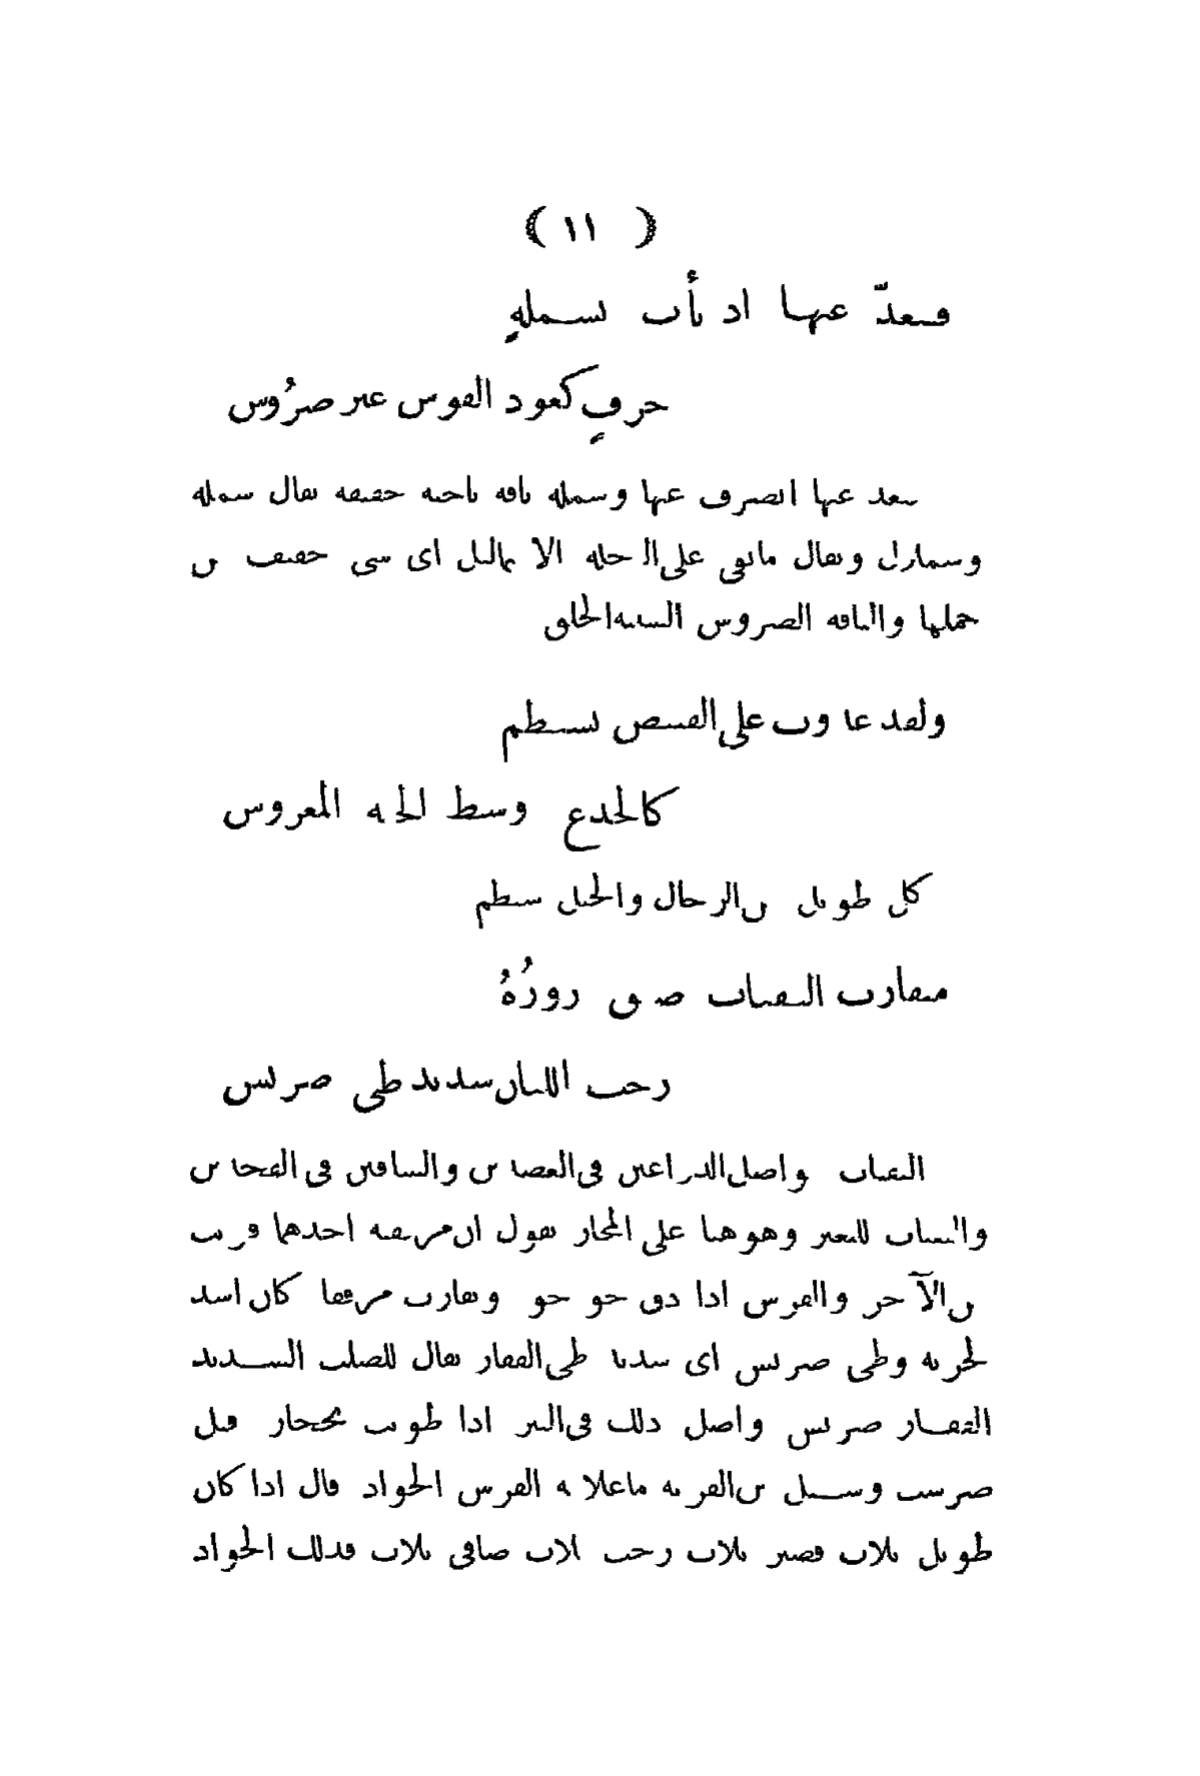 ( ١١ )
فتعدّ عنها اذ نأت بشملةٍ
حرفٍ كعود القوس غير ضرُوس
تعد عنها انصرف عنها وشملة ناقة ناجية خفيفة يقال شملة
وشملال ويقال مابقى على النخلة الا شماليل اى شى خفيف من
حملها والناقة الضروس السيئة الخلق
ولقد غدوت على القنيص بشيظم
كالجذع وسط الجنة المغروس
كل طويل من الرجال والخيل شيظم
متقارب الثفنات ضيق زورُهُ
رحب اللبان شديد طى ضريس
الثفنات مواصل الذراعين فى العضدين والساقين فى الفخذين
والثفنات للبعير وهو ههنا على المجاز يقول ان مرفقيه احدهما قريب
من الآخر والفرس اذا دق جؤجؤه وتقارب مرفقاه كان اشد
لجريه وطى ضريس اى شديد طى الفقار يقال للصلب الشديد
الفقار ضريس واصل ذلك فى البئر اذا طويت بحجارة قيل
ضرست وسئل ابن القرية ماعلامة الفرس الجواد قال اذا كان
طويل ثلاث قصير ثلاث رحب ثلاث صافى ثلاث فذلك الجواد